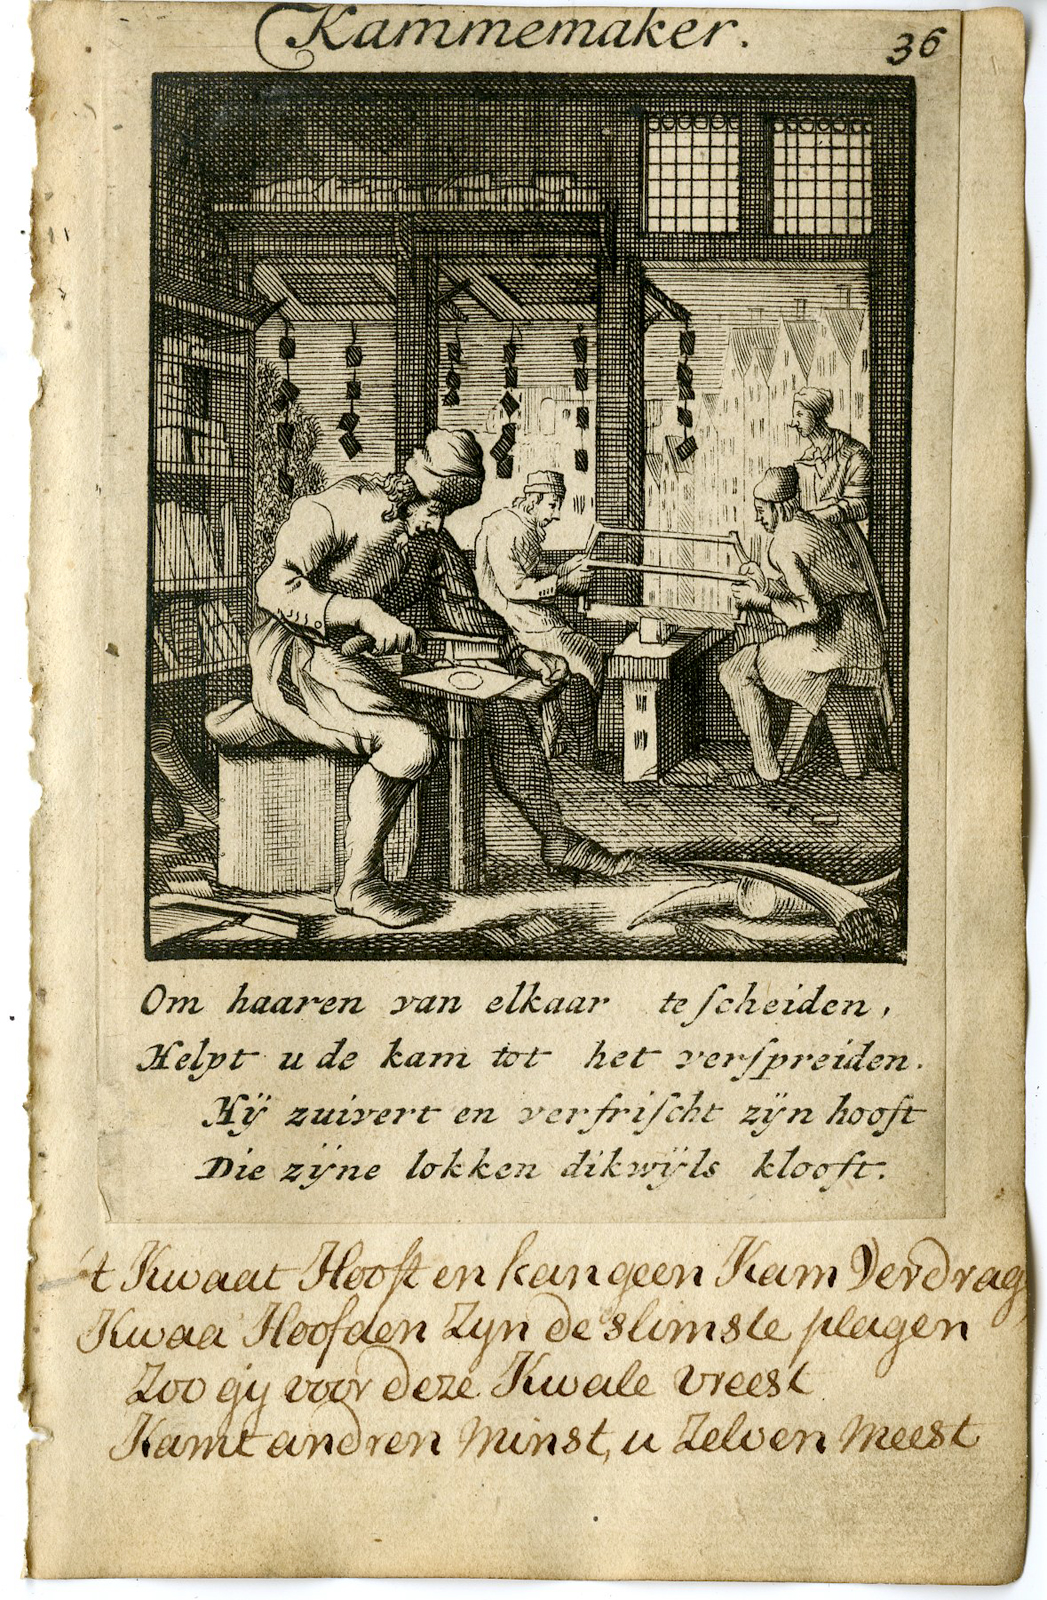 Kammemaker.
36
Om haaren van elkaar te ſcheiden,
Helpt u de kam tot het verſpreiden.
Hÿ zuivert en verfriſcht zÿn hooft
Die zÿne lokken dikwÿls klooft.
't Kwaat Hooft en kan geen Kam Verdrag
Kwaa Hoofden Zyn de slimste plagen
Zoo gy voor deze Kwale vreest
Kamt andren Minst, u Zelven Meest